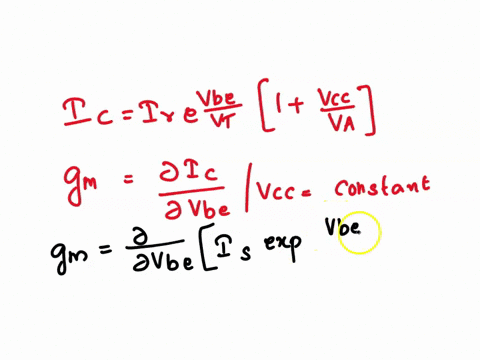 Ic = Ir e Vbe/VT [1 + Vcc/VA]
gm = ∂Ic/∂Vbe | Vcc = constant
gm = ∂/∂Vbe [Is exp Vbe